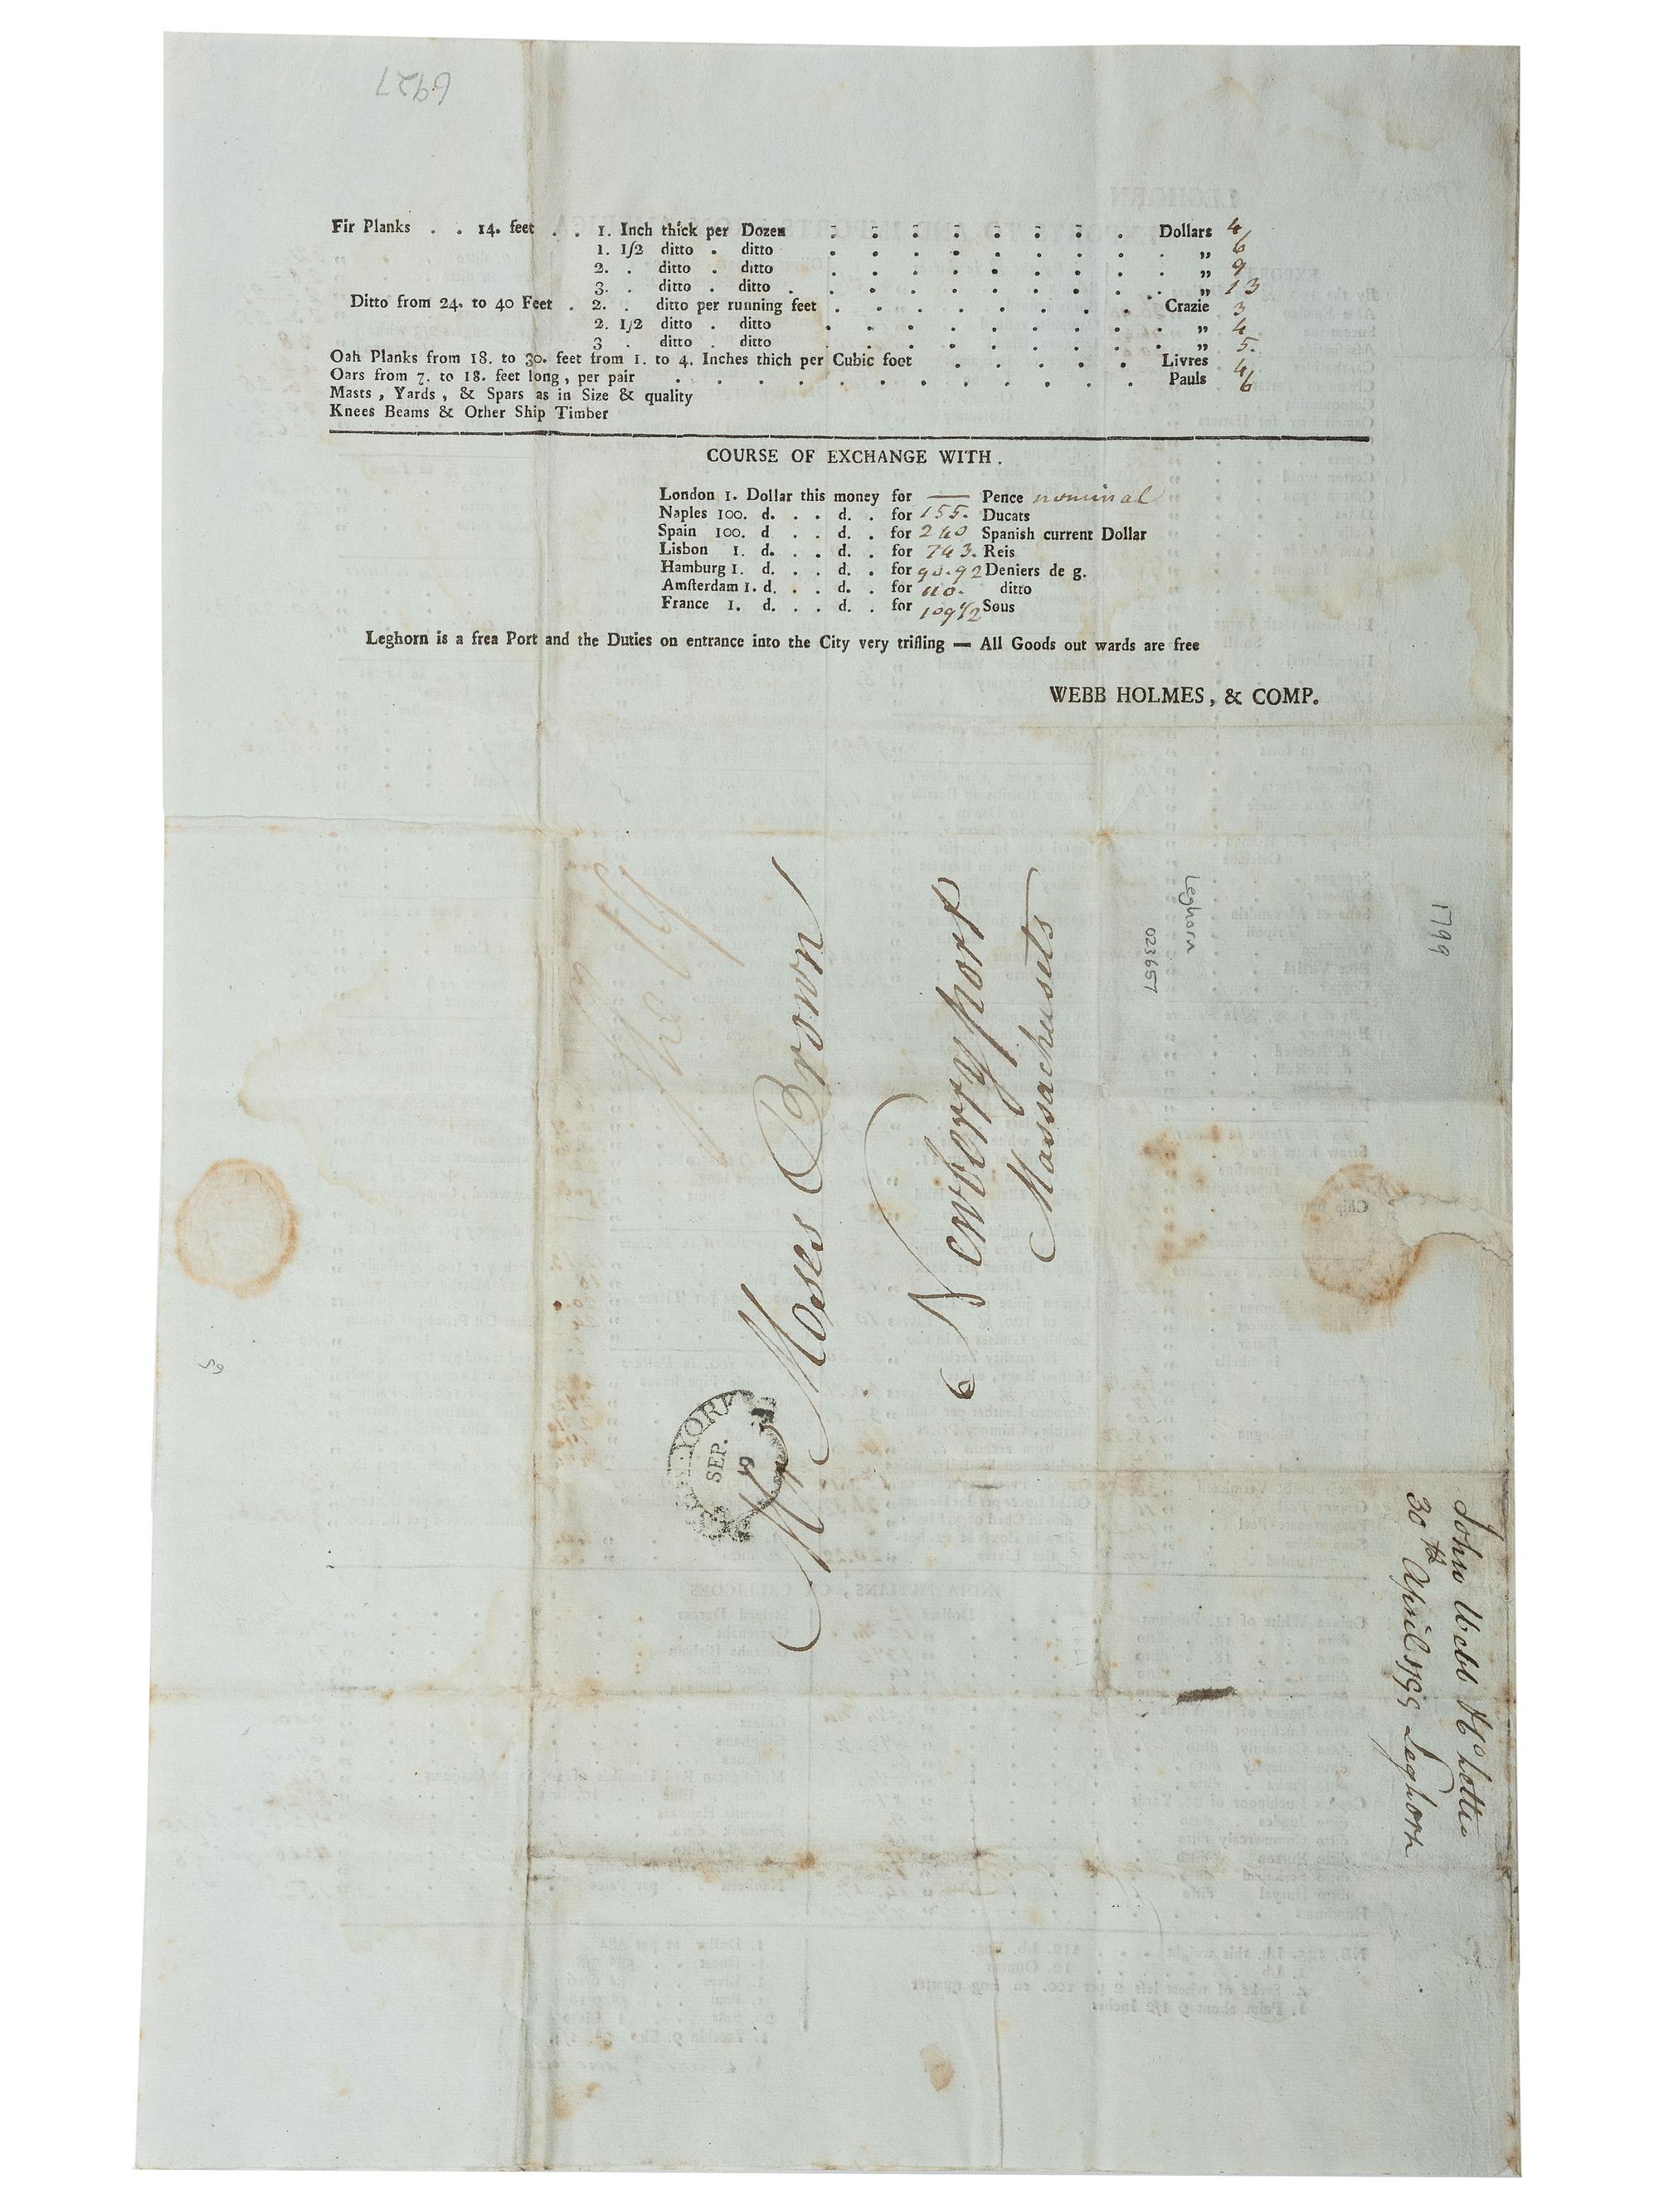 6927
Fir Planks . . 14. feet . . 1. Inch thick per Dozen . . . . . . . . Dollars 4
1. 1/2 ditto . ditto . . . . . . . . . „ 6
2. . ditto . ditto . . . . . . . . . „ 9
3. . ditto . ditto . . . . . . . . . „ 13
Ditto from 24. to 40 Feet . 2. . ditto per running feet . . . . . . . . Crazie 3
2. 1/2 ditto . ditto . . . . . . . . . „ 4
3 . ditto . ditto . . . . . . . . . „ 5.
Oah Planks from 18. to 30. feet from 1. to 4. Inches thich per Cubic foot . . . . . Livres 4
Oars from 7. to 18. feet long, per pair . . . . . . . . . . . . Pauls 6
Masts, Yards, & Spars as in Size & quality
Knees Beams & Other Ship Timber
COURSE OF EXCHANGE WITH.
London 1. Dollar this money for — Pence nominal
Naples 100. d. . . d. . for 155. Ducats
Spain 100. d . . d. . for 240 Spanish current Dollar
Lisbon 1. d. . . d. . for 743. Reis
Hamburg 1. d. . . d. . for 90.92 Deniers de g.
Amsterdam 1. d. . . d. . for 110. ditto
France 1. d. . . d. . for 109 1/2 Sous
Leghorn is a frea Port and the Duties on entrance into the City very trifling — All Goods out wards are free
WEBB HOLMES, & COMP.
Mr Moses Brown
Newberryport
Massachusets
YORK
SEP.
Leghorn
023657
1799
John Webb
30th April 1799 Leghorn